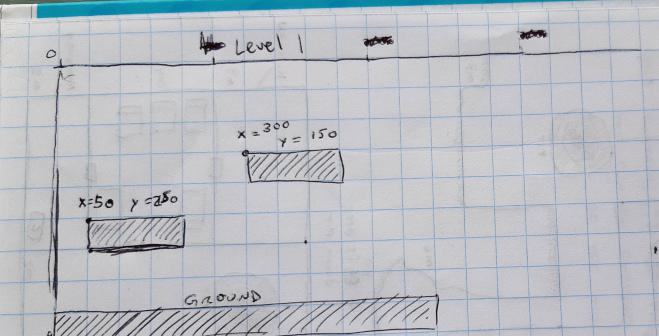 0
Level 1
x=300
y=150
x=50 y=250
GROUND